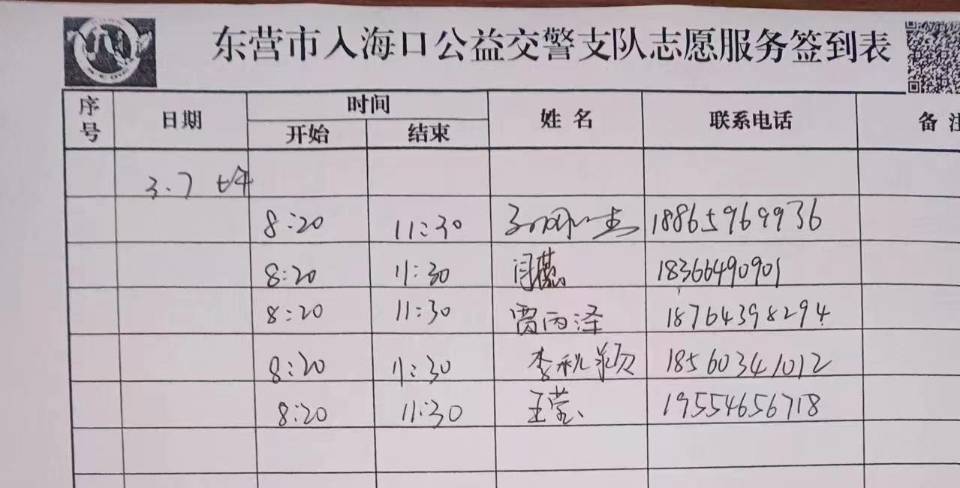 东营市入海口公益交警支队志愿服务签到表
序号 日期 时间 姓名 联系电话 备注
开始 结束
3.7 上午
8:20 11:30 18865969936
8:20 11:30 闫磊 18366490901
8:20 11:30 贾丙泽 18764398294
8:20 11:30 李秋颖 18560341012
8:20 11:30 王莹 19554656718